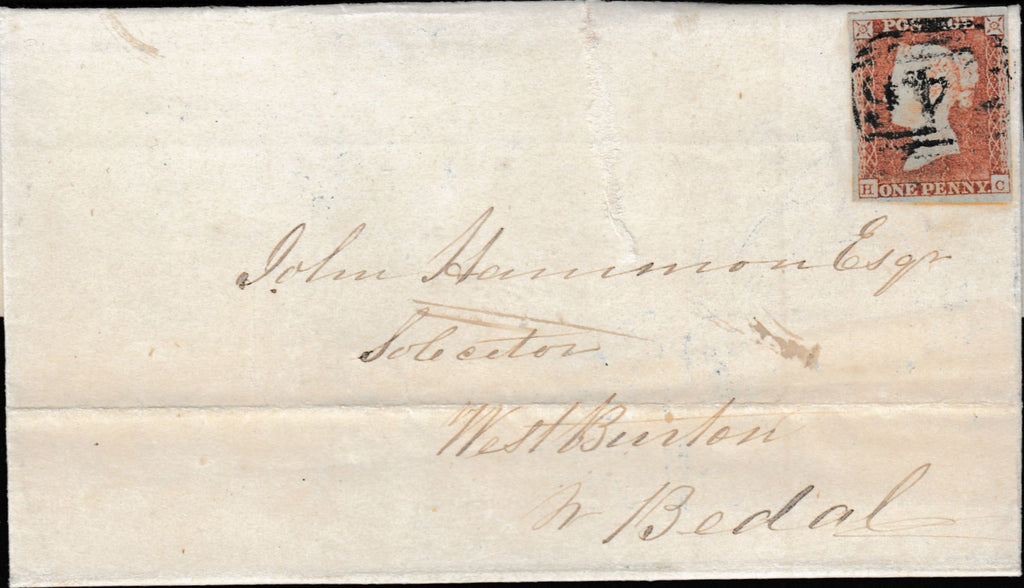 POSTAGE
H ONE PENNY. C
John Hammon Esqr
Solecitor
West Burton
Nr Bedal